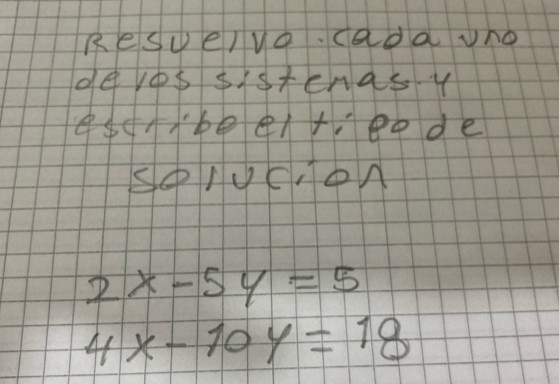 Resuelvo cada uno
de los sistemas y
escribo el tipo de
solución
2x - 5y = 5
4x - 10y = 18